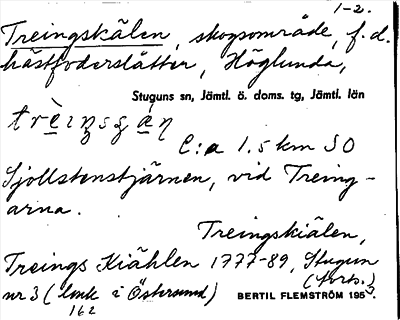 1-2.
Treingskälen, skogsområde, f.d.
hästfoderslåtter, Höglunda,
Stuguns sn, Jämtl. ö. doms. tg, Jämtl. län
C:a 1.5 km SO
Sjollstenstjärnen, vid Treing-
arna.
Treingskiälen,
Treings Kiählen 1777-89, Stugun
nr 3 (lmk i Östersund) (forts.)
162 BERTIL FLEMSTRÖM 195